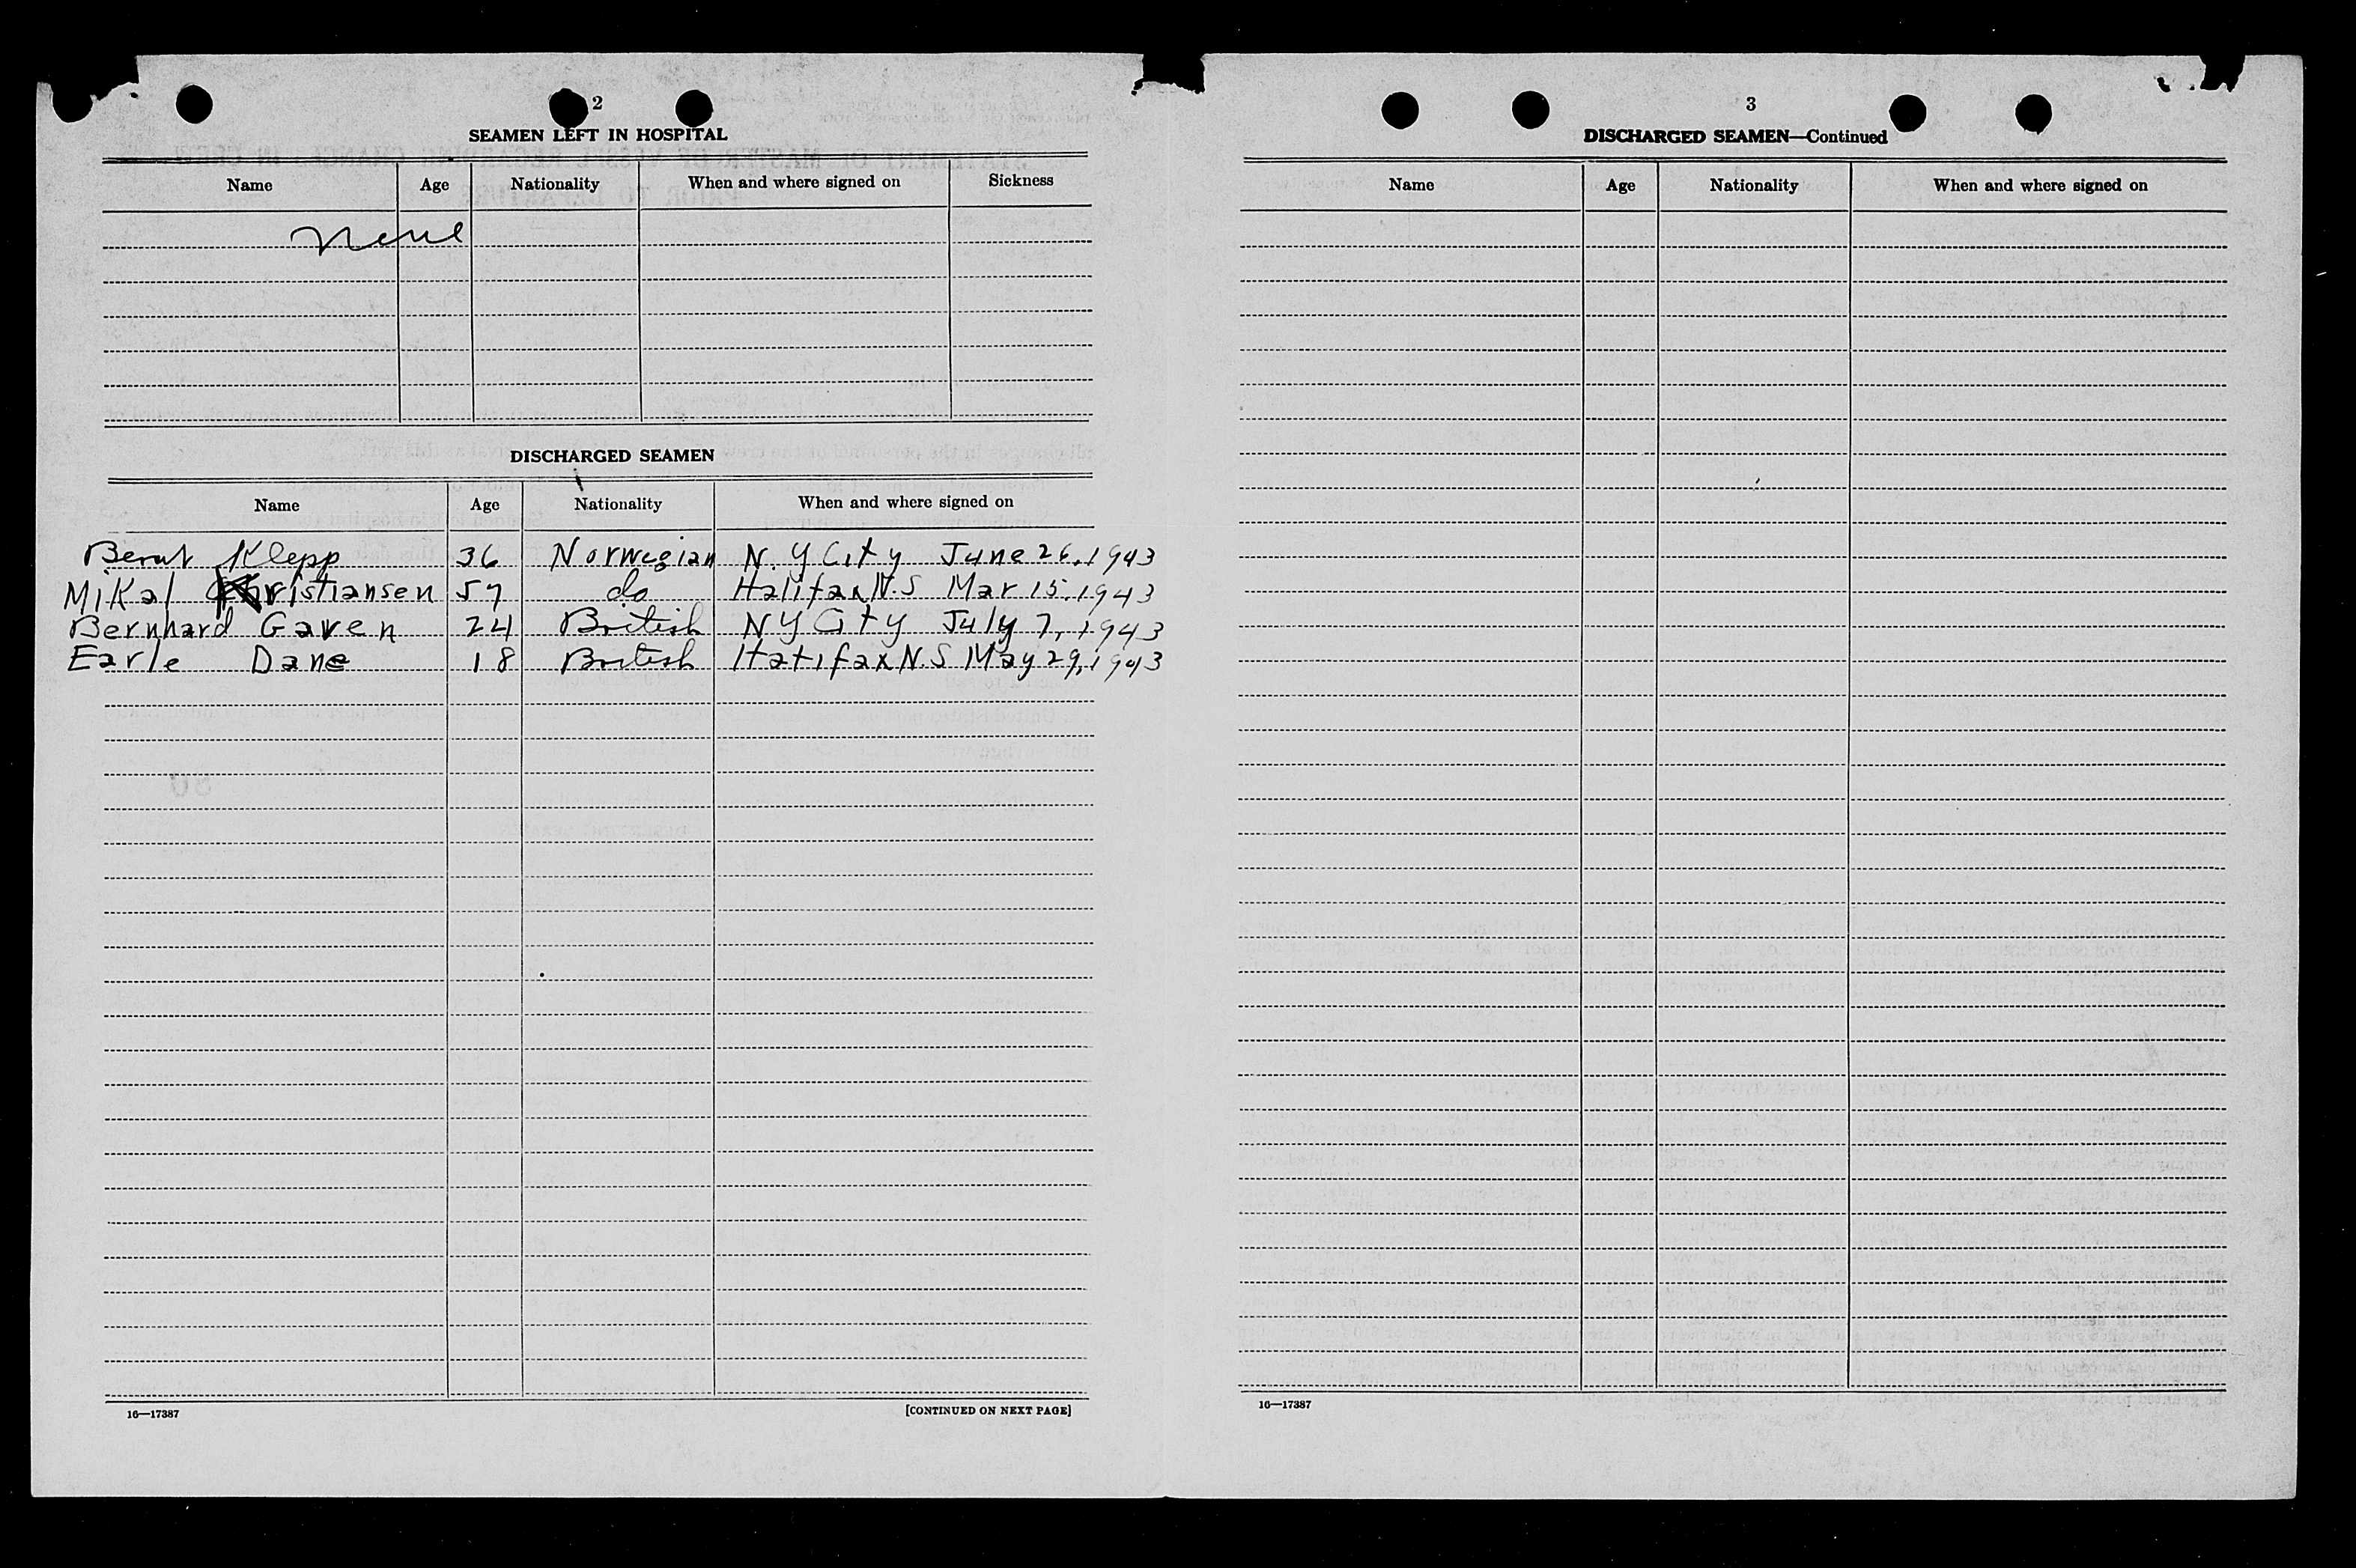 2
SEAMEN LEFT IN HOSPITAL
Name Age Nationality When and where signed on Sickness
None
DISCHARGED SEAMEN
Name Age Nationality When and where signed on
Bernt Klepp 36 Norwegian N. Y City June 26, 1943
Mikal Kristiansen 57 do Halifax N.S Mar 15, 1943
Bernhard Gaven 24 British N Y City July 7, 1943
Earle Dane 18 British Halifax N.S May 29, 1943
16—17387 [CONTINUED ON NEXT PAGE]
3
DISCHARGED SEAMEN—Continued
Name Age Nationality When and where signed on
16—17387